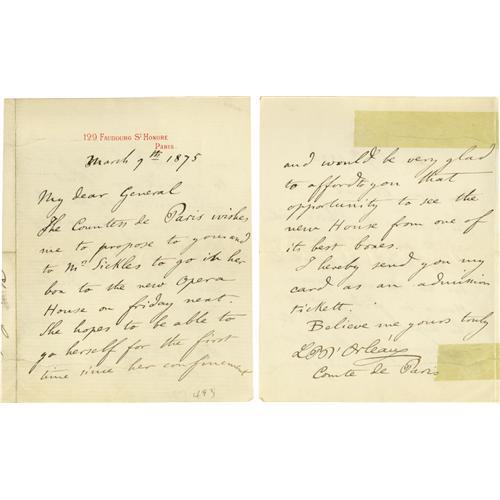 129 Faubourg St Honoré
Paris
March 9th 1875
My dear General
The Countess de Paris wishes
me to propose to you and
to Ms Sickles to go in her
box to the new Opera
House on friday next.
She hopes to be able to
go herself for the first
time since her confinement
493
and would be very glad
to afford to you that
opportunity to see the
new House from one of
its best boxes.
I hereby send you my
card as an admission
tickett.
Believe me yours truly
L P d'Orléans
Comte de Paris